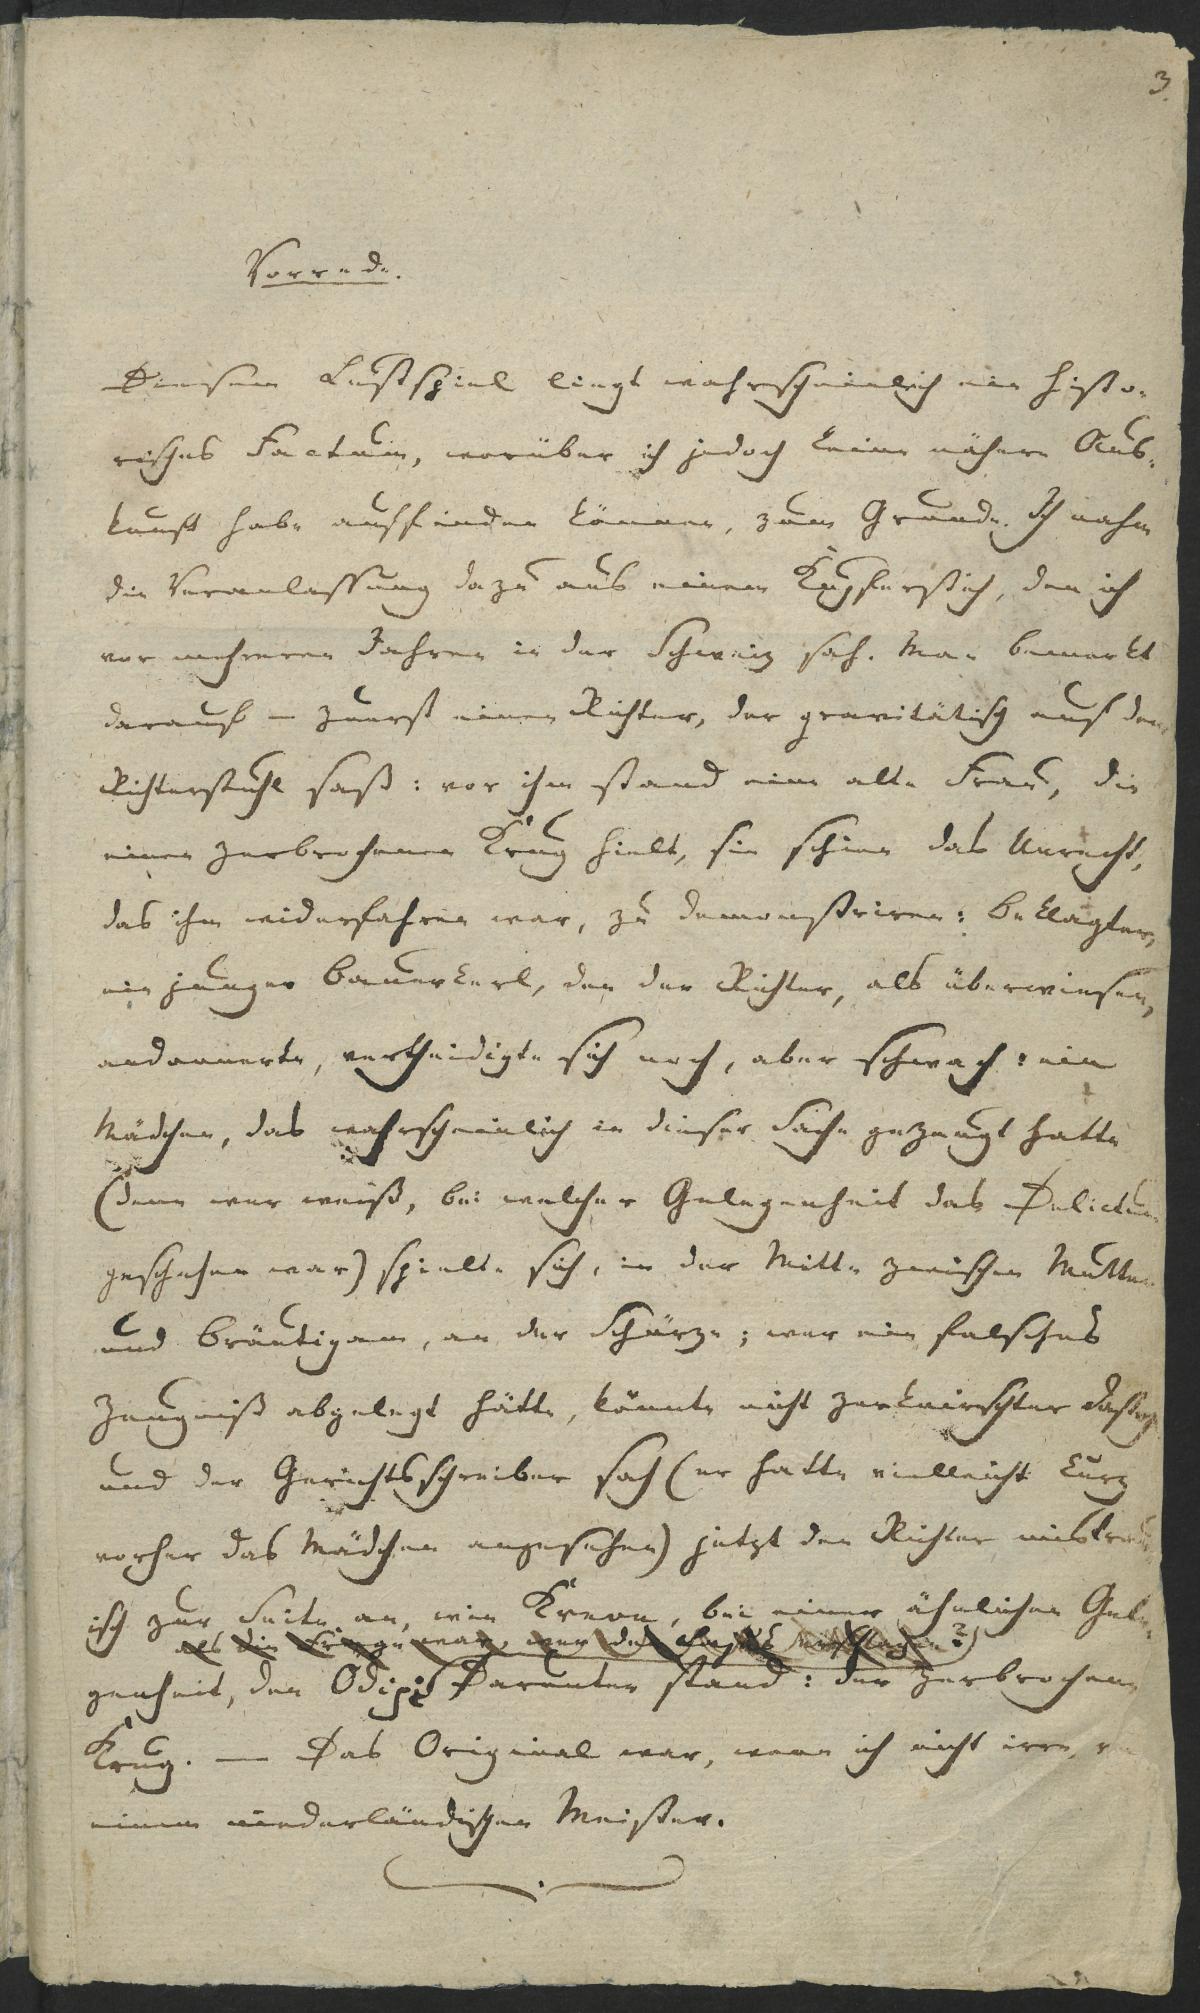 3.
Vorrede.
Diesem Lustspiel liegt wahrscheinlich ein histo-
risches Factum, worüber ich jedoch keine nähere Aus-
kunft habe auffinden können, zum Grunde. Ich nahm
die Veranlassung dazu aus einem Kupferstich, den ich
vor mehreren Jahren in der Schweiz sah. Man bemerkte
darauf – zuerst einen Richter, der gravitätisch auf dem
Richterstuhl saß: vor ihm stand eine alte Frau, die
einen zerbrochenen Krug hielt, sie schien das Unrecht,
das ihm widerfahren war, zu demonstriren: Beklagter,
ein junger Bauerkerl, den der Richter, als überwiesen,
andonnerte, vertheidigte sich noch, aber schwach: ein
Mädchen, das wahrscheinlich in dieser Sache gezeugt hatte
(denn wer weiß, bei welcher Gelegenheit das Delictum
geschehen war) spielte sich, in der Mitte zwischen Mutter
und Bräutigam, an der Schürze; wer ein falsches
Zeugniß abgelegt hätte, könnte nicht zerknirschter dastehn:
und der Gerichtsschreiber sah (er hatte vielleicht kurz
vorher das Mädchen angesehen) jetzt den Richter mistrau-
isch zur Seite an, wie Kreon, bei einer ähnlichen Gele-
als die Frage war, wer den Lajus erschlagen?)
genheit, den Ödip. Darunter stand: der zerbrochene
Krug. — Das Original war, wenn ich nicht irre, von
einem niederländischen Meister.